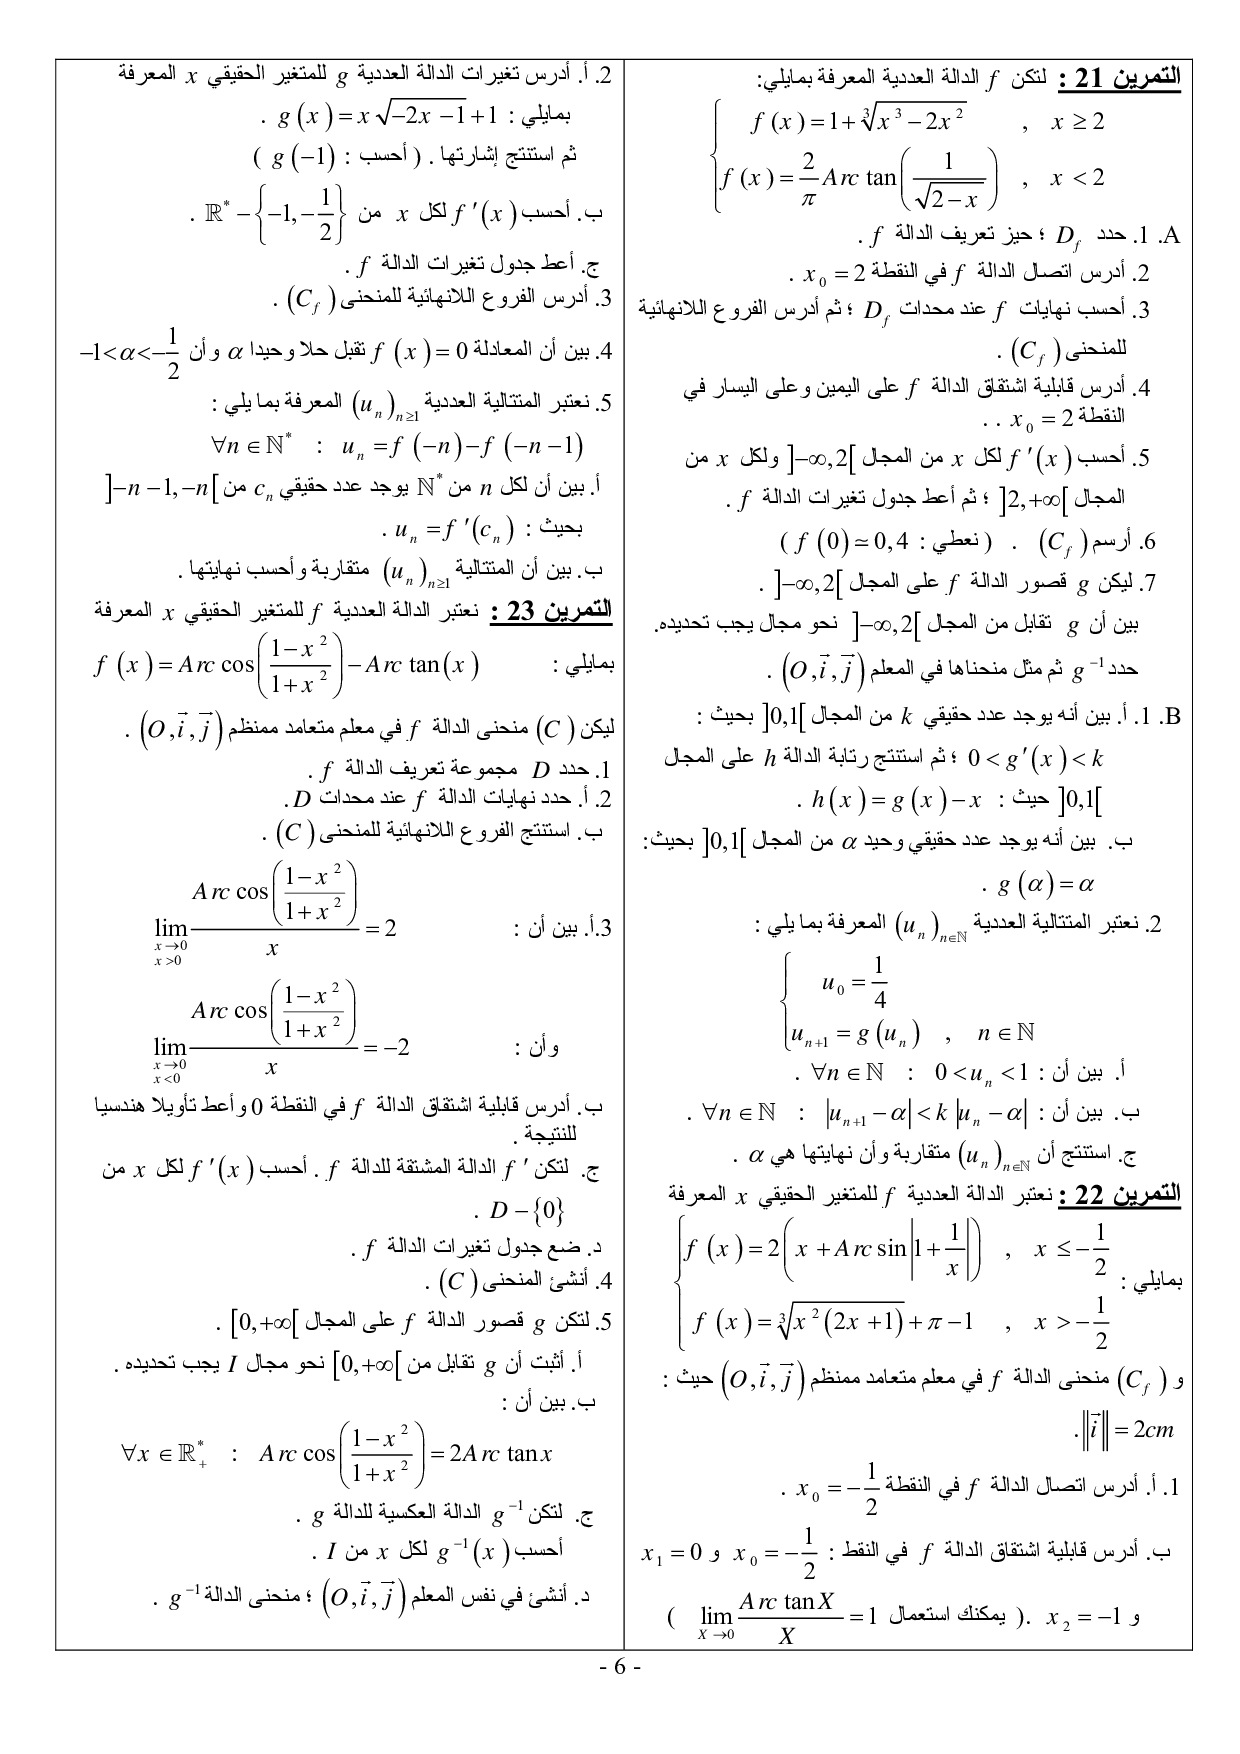 التمرين 21 : لتكن f الدالة العددية المعرفة بمايلي:
f(x) = 1 + ∛(x³ − 2x²) , x ≥ 2
f(x) = 2/π Arc tan(1/√(2 − x)) , x < 2
A. 1. حدد D_f ؛ حيز تعريف الدالة f .
2. أدرس اتصال الدالة f في النقطة x₀ = 2 .
3. أحسب نهايات f عند محدات D_f ؛ ثم أدرس الفروع اللانهائية
للمنحنى (C_f) .
4. أدرس قابلية اشتقاق الدالة f على اليمين وعلى اليسار في
النقطة x₀ = 2 . .
5. أحسب f ′(x) لكل x من المجال ]−∞,2[ ولكل x من
المجال ]2,+∞[ ؛ ثم أعط جدول تغيرات الدالة f .
6. أرسم (C_f) . ( نعطي : f(0) ≃ 0,4 )
7. ليكن g قصور الدالة f على المجال ]−∞,2[ .
بين أن g تقابل من المجال ]−∞,2[ نحو مجال يجب تحديده.
حدد g⁻¹ ثم مثل منحناها في المعلم (O,i⃗,j⃗) .
B. 1. أ. بين أنه يوجد عدد حقيقي k من المجال ]0,1[ بحيث :
0 < g′(x) < k ؛ ثم استنتج رتابة الدالة h على المجال
]0,1[ حيث : h(x) = g(x) − x .
ب. بين أنه يوجد عدد حقيقي وحيد α من المجال ]0,1[ بحيث:
g(α) = α .
2. نعتبر المتتالية العددية (u_n)_{n∈ℕ} المعرفة بما يلي :
u₀ = 1/4
u_{n+1} = g(u_n) , n ∈ ℕ
أ. بين أن : ∀n ∈ ℕ : 0 < u_n < 1 .
ب. بين أن : ∀n ∈ ℕ : |u_{n+1} − α| < k |u_n − α| .
ج. استنتج أن (u_n)_{n∈ℕ} متقاربة وأن نهايتها هي α .
التمرين 22 : نعتبر الدالة العددية f للمتغير الحقيقي x المعرفة
بمايلي : f(x) = 2(x + Arc sin|1 + 1/x|) , x ≤ −1/2
f(x) = ∛(x²(2x + 1)) + π − 1 , x > −1/2
و (C_f) منحنى الدالة f في معلم متعامد ممنظم (O,i⃗,j⃗) حيث :
‖i⃗‖ = 2cm .
1. أ. أدرس اتصال الدالة f في النقطة x₀ = −1/2 .
ب. أدرس قابلية اشتقاق الدالة f في النقط : x₀ = −1/2 و x₁ = 0
و x₂ = −1 .( يمكنك استعمال lim_{X→0} Arc tan X / X = 1 )
2. أ. أدرس تغيرات الدالة العددية g للمتغير الحقيقي x المعرفة
بمايلي : g(x) = x√(−2x − 1) + 1 .
ثم استنتج إشارتها . ( أحسب : g(−1) )
ب. أحسب f ′(x) لكل x من ℝ* − {−1, −1/2} .
ج. أعط جدول تغيرات الدالة f .
3. أدرس الفروع اللانهائية للمنحنى (C_f) .
4. بين أن المعادلة f(x) = 0 تقبل حلا وحيدا α وأن −1 < α < −1/2
5. نعتبر المتتالية العددية (u_n)_{n≥1} المعرفة بما يلي :
∀n ∈ ℕ* : u_n = f(−n) − f(−n − 1)
أ. بين أن لكل n من ℕ* يوجد عدد حقيقي c_n من ]−n − 1, −n[
بحيث : u_n = f ′(c_n) .
ب. بين أن المتتالية (u_n)_{n≥1} متقاربة وأحسب نهايتها .
التمرين 23 : نعتبر الدالة العددية f للمتغير الحقيقي x المعرفة
بمايلي : f(x) = Arc cos((1 − x²)/(1 + x²)) − Arc tan(x)
ليكن (C) منحنى الدالة f في معلم متعامد ممنظم (O,i⃗,j⃗) .
1. حدد D مجموعة تعريف الدالة f .
2. أ. حدد نهايات الدالة f عند محدات D .
ب. استنتج الفروع اللانهائية للمنحنى (C) .
3.أ. بين أن : lim_{x→0, x>0} Arc cos((1 − x²)/(1 + x²)) / x = 2
وأن : lim_{x→0, x<0} Arc cos((1 − x²)/(1 + x²)) / x = −2
ب. أدرس قابلية اشتقاق الدالة f في النقطة 0 وأعط تأويلا هندسيا
للنتيجة .
ج. لتكن f ′ الدالة المشتقة للدالة f . أحسب f ′(x) لكل x من
D − {0} .
د. ضع جدول تغيرات الدالة f .
4. أنشئ المنحنى (C) .
5. لتكن g قصور الدالة f على المجال [0,+∞[ .
أ. أثبت أن g تقابل من [0,+∞[ نحو مجال I يجب تحديده .
ب. بين أن :
∀x ∈ ℝ*₊ : Arc cos((1 − x²)/(1 + x²)) = 2Arc tan x
ج. لتكن g⁻¹ الدالة العكسية للدالة g .
أحسب g⁻¹(x) لكل x من I .
د. أنشئ في نفس المعلم (O,i⃗,j⃗) ؛ منحنى الدالة g⁻¹ .
- 6 -